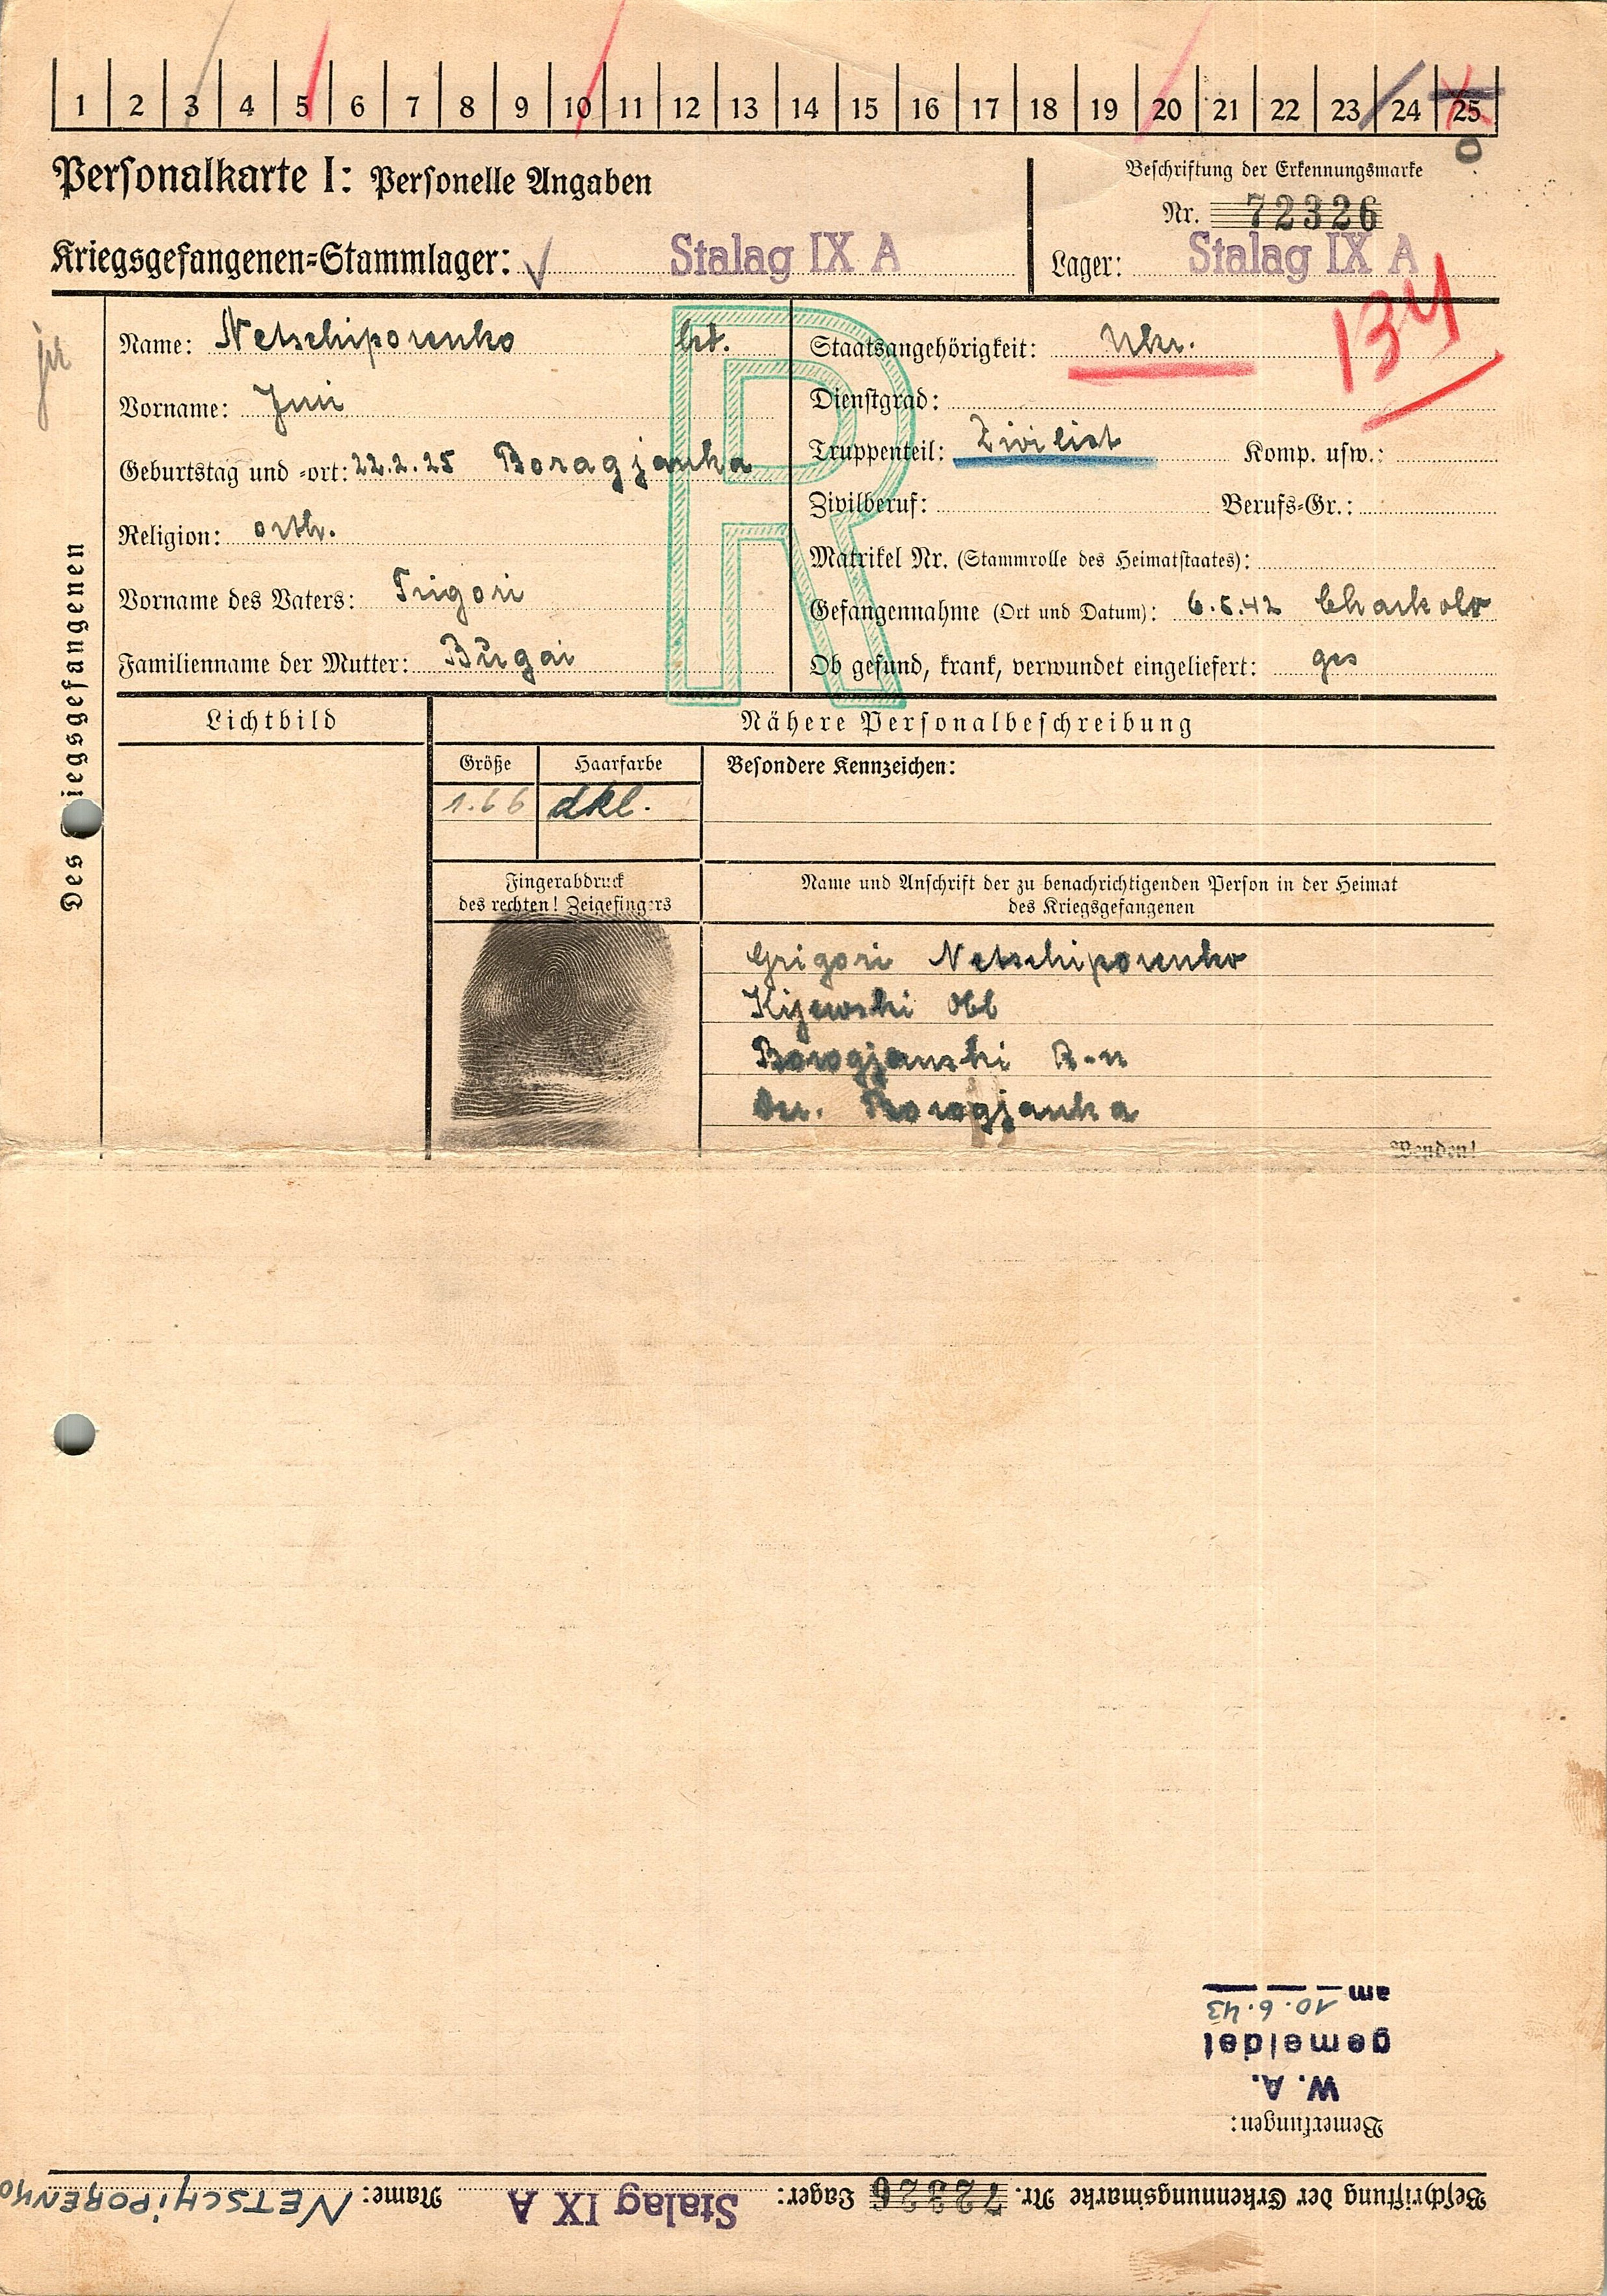 1 2 3 4 5 6 7 8 9 10 11 12 13 14 15 16 17 18 19 20 21 22 23 24 25
Personalkarte I: Personelle Angaben
Beschriftung der Erkennungsmarke
Nr. 72326
Kriegsgefangenen-Stammlager: Stalag IX A
Lager: Stalag IX A
134
Des iegsgefangenen
R
Name: Netschiporenko
Vorname: Juri
Geburtstag und -ort: 22.2.25 Boragjanka
Religion: orth.
Vorname des Vaters: Grigori
Familienname der Mutter: Bŭgai
Staatsangehörigkeit: Ukr.
Dienstgrad:
Truppenteil: Zivilist Komp. usw.:
Zivilberuf: Berufs-Gr.:
Matrikel Nr. (Stammrolle des Heimatstaates):
Gefangennahme (Ort und Datum): 6.5.42 Charkow
Ob gesund, krank, verwundet eingeliefert: ges
Lichtbild
Nähere Personalbeschreibung
Größe Haarfarbe Besondere Kennzeichen:
1.66 dkl.
Fingerabdruck
des rechten! Zeigefingers
Name und Anschrift der zu benachrichtigenden Person in der Heimat
des Kriegsgefangenen
Grigori Netschiporenko
Kijewski Obl
Borogjanski R-n
Borogjanka
Wenden!
Beschriftung der Erkennungsmarke Nr. 72326 Lager: Stalag IX A Name: NETSCHIPORENKO
Bemerkungen:
W. A.
gemeldet
am 10.6.43